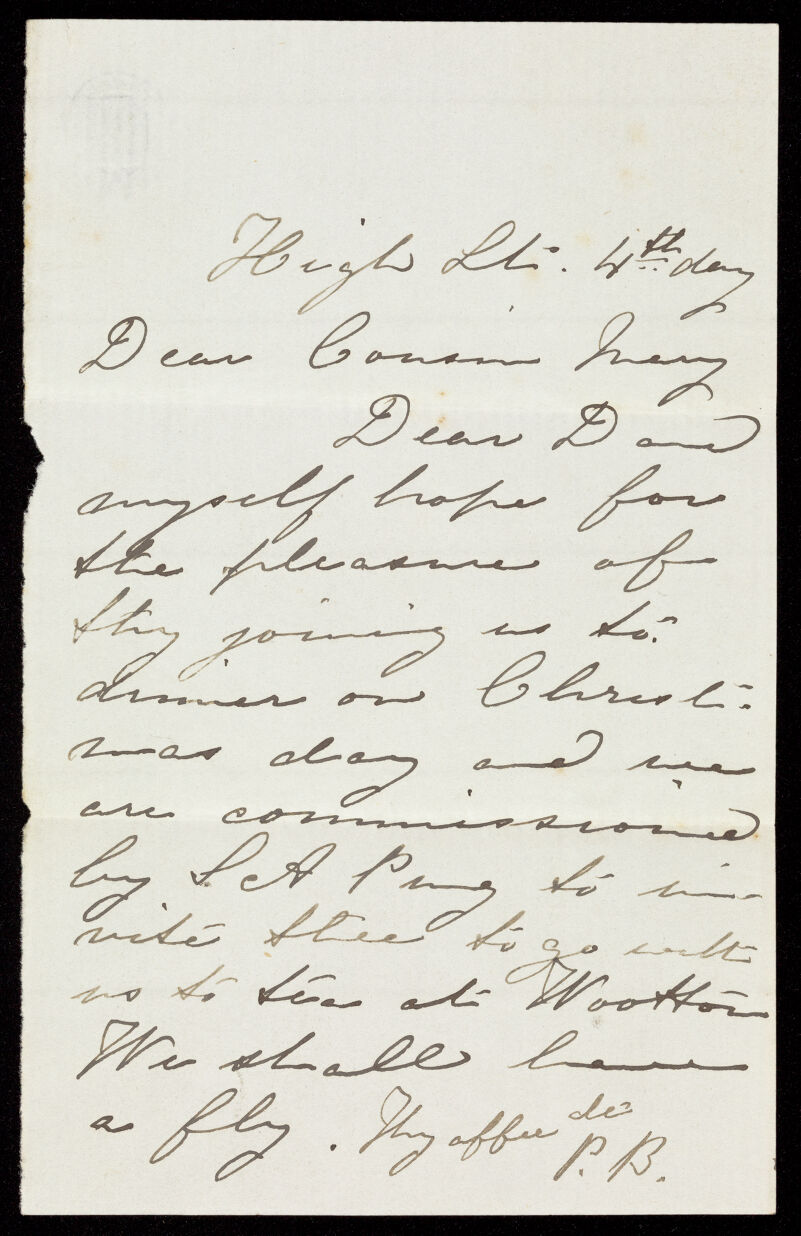 High St. 4th day
Dear Cousin Mary
Dear D and
myself hope for
the pleasure of
thy joining us to
dinner on Christ-
mas day and we
are commissioned
by S. A P to in-
vite thee to go with
us to tea at Wootton
We shall have
a fly. Thy affec
P. B.